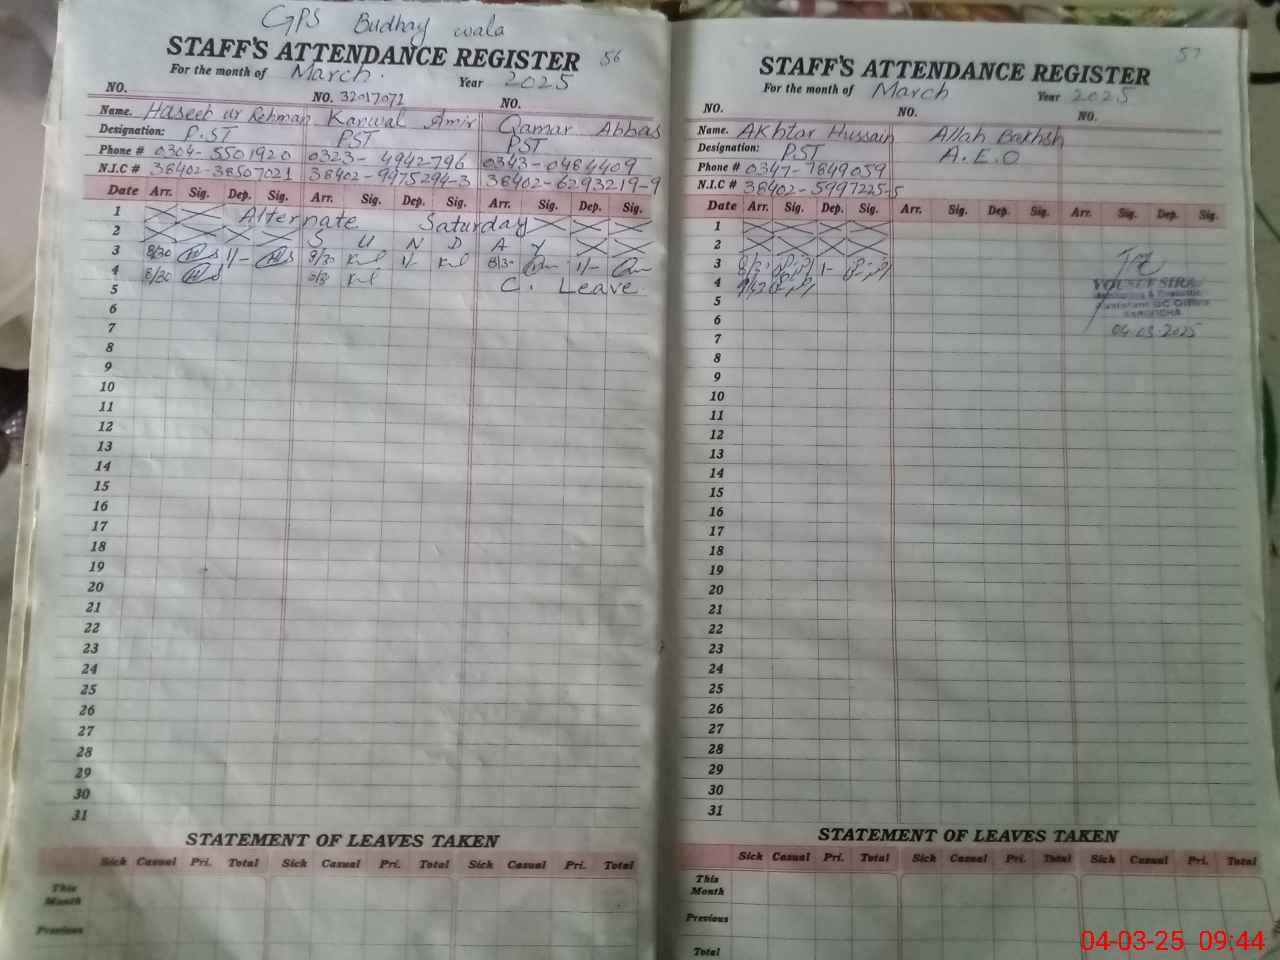 GPS Budhay wala
STAFF'S ATTENDANCE REGISTER 56
For the month of March. Year 2025
NO. NO. 32017071 NO.
Name. Haseeb ur Rehman Kanwal Amir Qamar Abbas
Designation: P.ST PST PST
Phone # 0304-5501920 0323-4942796 0343-0464409
N.I.C # 38402-38507021 38402-9475294-3 38402-6293219-9
Date Arr. Sig. Dep. Sig. Arr. Sig. Dep. Sig. Arr. Sig. Dep. Sig.
1 Alternate Saturday
2 S U N D A Y
3 8/30 1/- 8/30 1/- 8/3- 1/-
4 8/30 C. Leave.
5
6
7
8
9
10
11
12
13
14
15
16
17
18
19
20
21
22
23
24
25
26
27
28
29
30
31
STATEMENT OF LEAVES TAKEN
Sick Casual Pri. Total Sick Casual Pri. Total Sick Casual Pri. Total
This Month
Previous
57
STAFF'S ATTENDANCE REGISTER
For the month of March Year 2025
NO. NO. NO.
Name. Akhtar Hussain Allah Bakhsh
Designation: PST A.E.O
Phone # 0347-7849059
N.I.C # 38402-5997225-5
Date Arr. Sig. Dep. Sig. Arr. Sig. Dep. Sig. Arr. Sig. Dep. Sig.
1
2
3
4
5
6
7
8
9
10
11
12
13
14
15
16
17
18
19
20
21
22
23
24
25
26
27
28
29
30
31
04-03-2025
STATEMENT OF LEAVES TAKEN
Sick Casual Pri. Total Sick Casual Pri. Total Sick Casual Pri. Total
This Month
Previous
Total
04-03-25 09:44